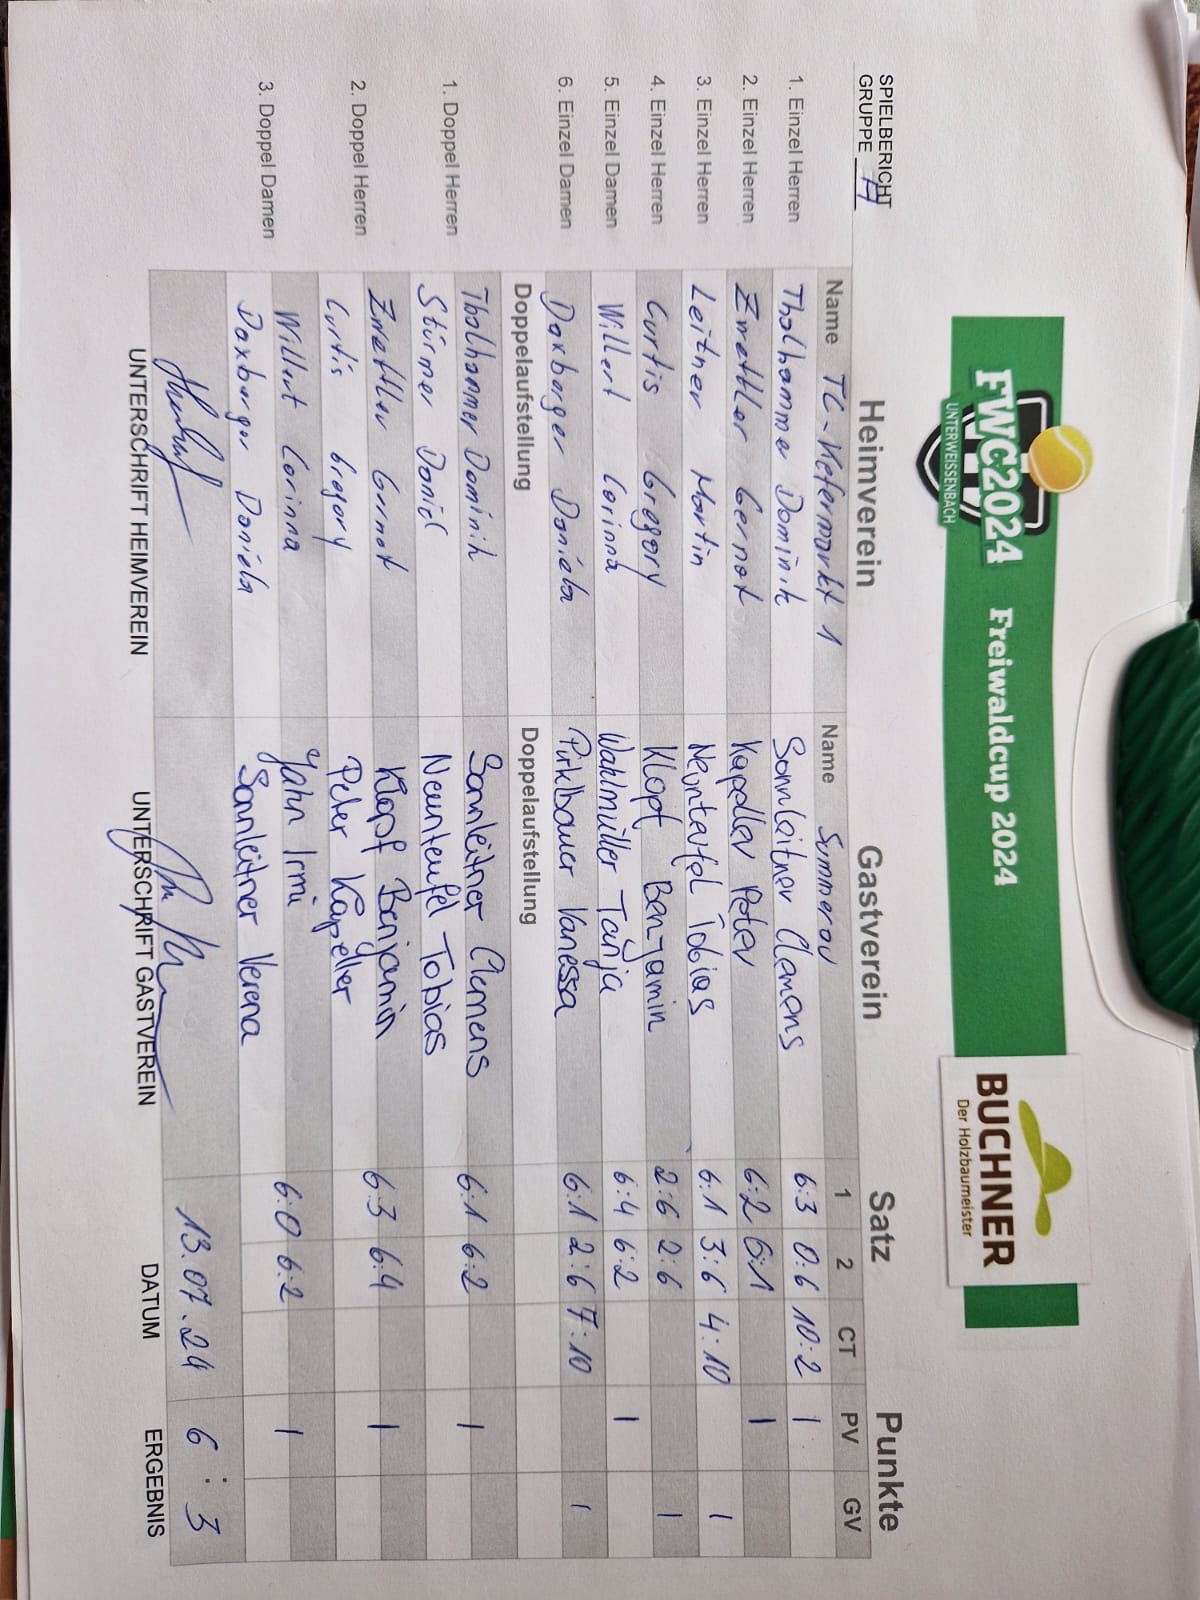 FWC2024
UNTERWEISSENBACH
Freiwaldcup 2024
BUCHNER
Der Holzbaumeister
SPIELBERICHT
GRUPPE A
Heimverein Gastverein Satz Punkte
Name TC-Kefermarkt 1 Name Summerau 1 2 CT PV GV
1. Einzel Herren Tholhammer Dominik Sonnleitner Clemens 6:3 0:6 10:2 1
2. Einzel Herren Zmettler Gernot Kapeller Peter 6:2 6:1 1
3. Einzel Herren Leitner Martin Neunteufel Tobias 6:1 3:6 4:10 1
4. Einzel Herren Curtis Gregory Klopf Benjamin 2:6 2:6 1
5. Einzel Damen Willert Corinna Wahlmüller Tanja 6:4 6:2 1
6. Einzel Damen Daxberger Daniela Pirklbauer Vanessa 6:1 2:6 7:10 1
Doppelaufstellung Doppelaufstellung
1. Doppel Herren Tholhammer Dominik Sonnleitner Clemens 6:1 6:2 1
Stürmer David Neunteufel Tobias
2. Doppel Herren Zmettler Gernot Klopf Benjamin 6:3 6:4 1
Curtis Gregory Peter Kapeller
3. Doppel Damen Willert Corinna Jahn Irmi 6:0 6:2 1
Daxberger Daniela Sonnleitner Verena
13.07.24 6:3
UNTERSCHRIFT HEIMVEREIN UNTERSCHRIFT GASTVEREIN DATUM ERGEBNIS